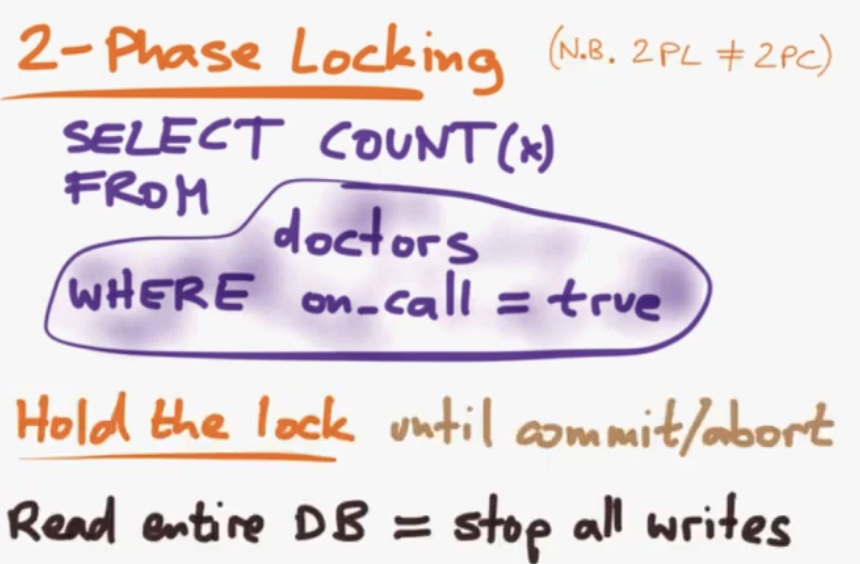 2-Phase Locking (N.B. 2PL ≠ 2PC)
SELECT COUNT(*)
FROM
doctors
WHERE on_call = true
Hold the lock until commit/abort
Read entire DB = stop all writes